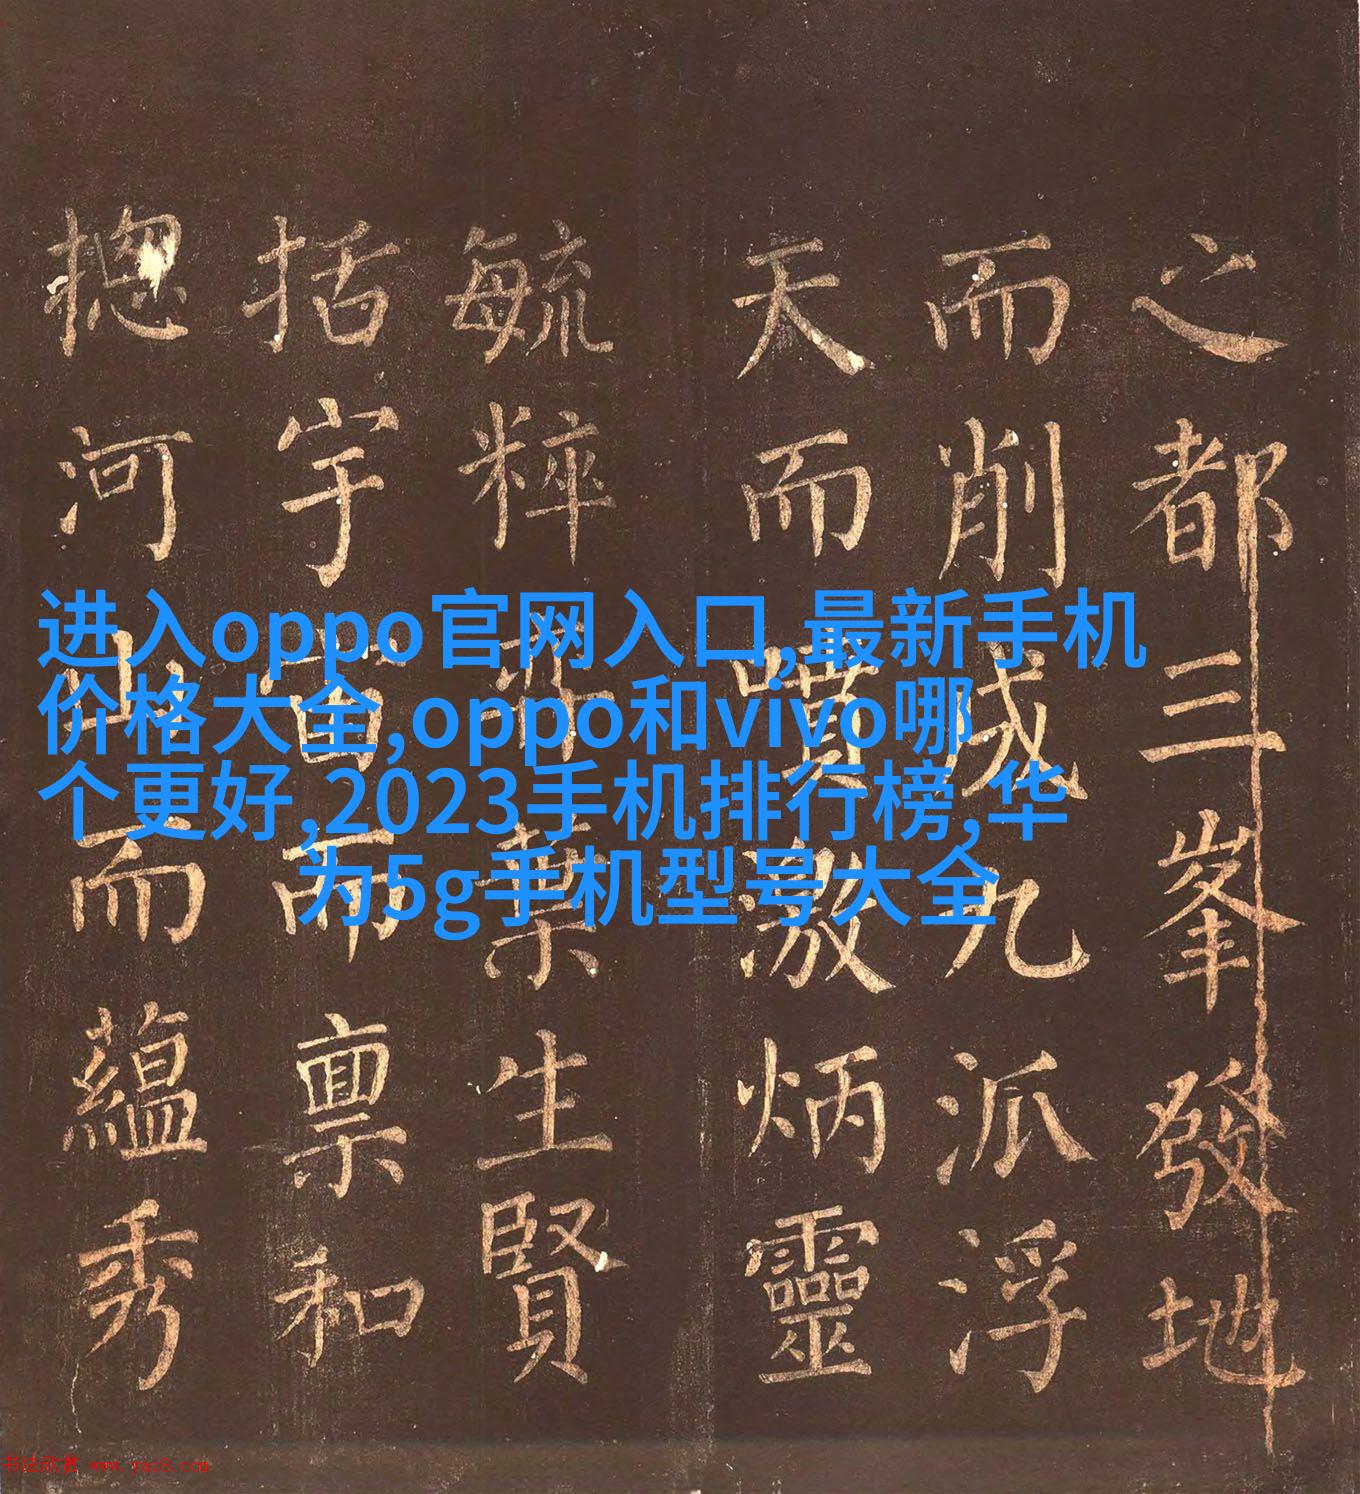 进入oppo官网入口,最新手机
价格大全,oppo和vivo哪
个更好,2023手机排行榜,华
为5g手机型号大全
之都三峯發地
而削成九派浮
天而噴激炳靈
毓粹葉生賢
括宇宙而禀和
揔河山而蘊秀
书法欣赏 www.yac8.com